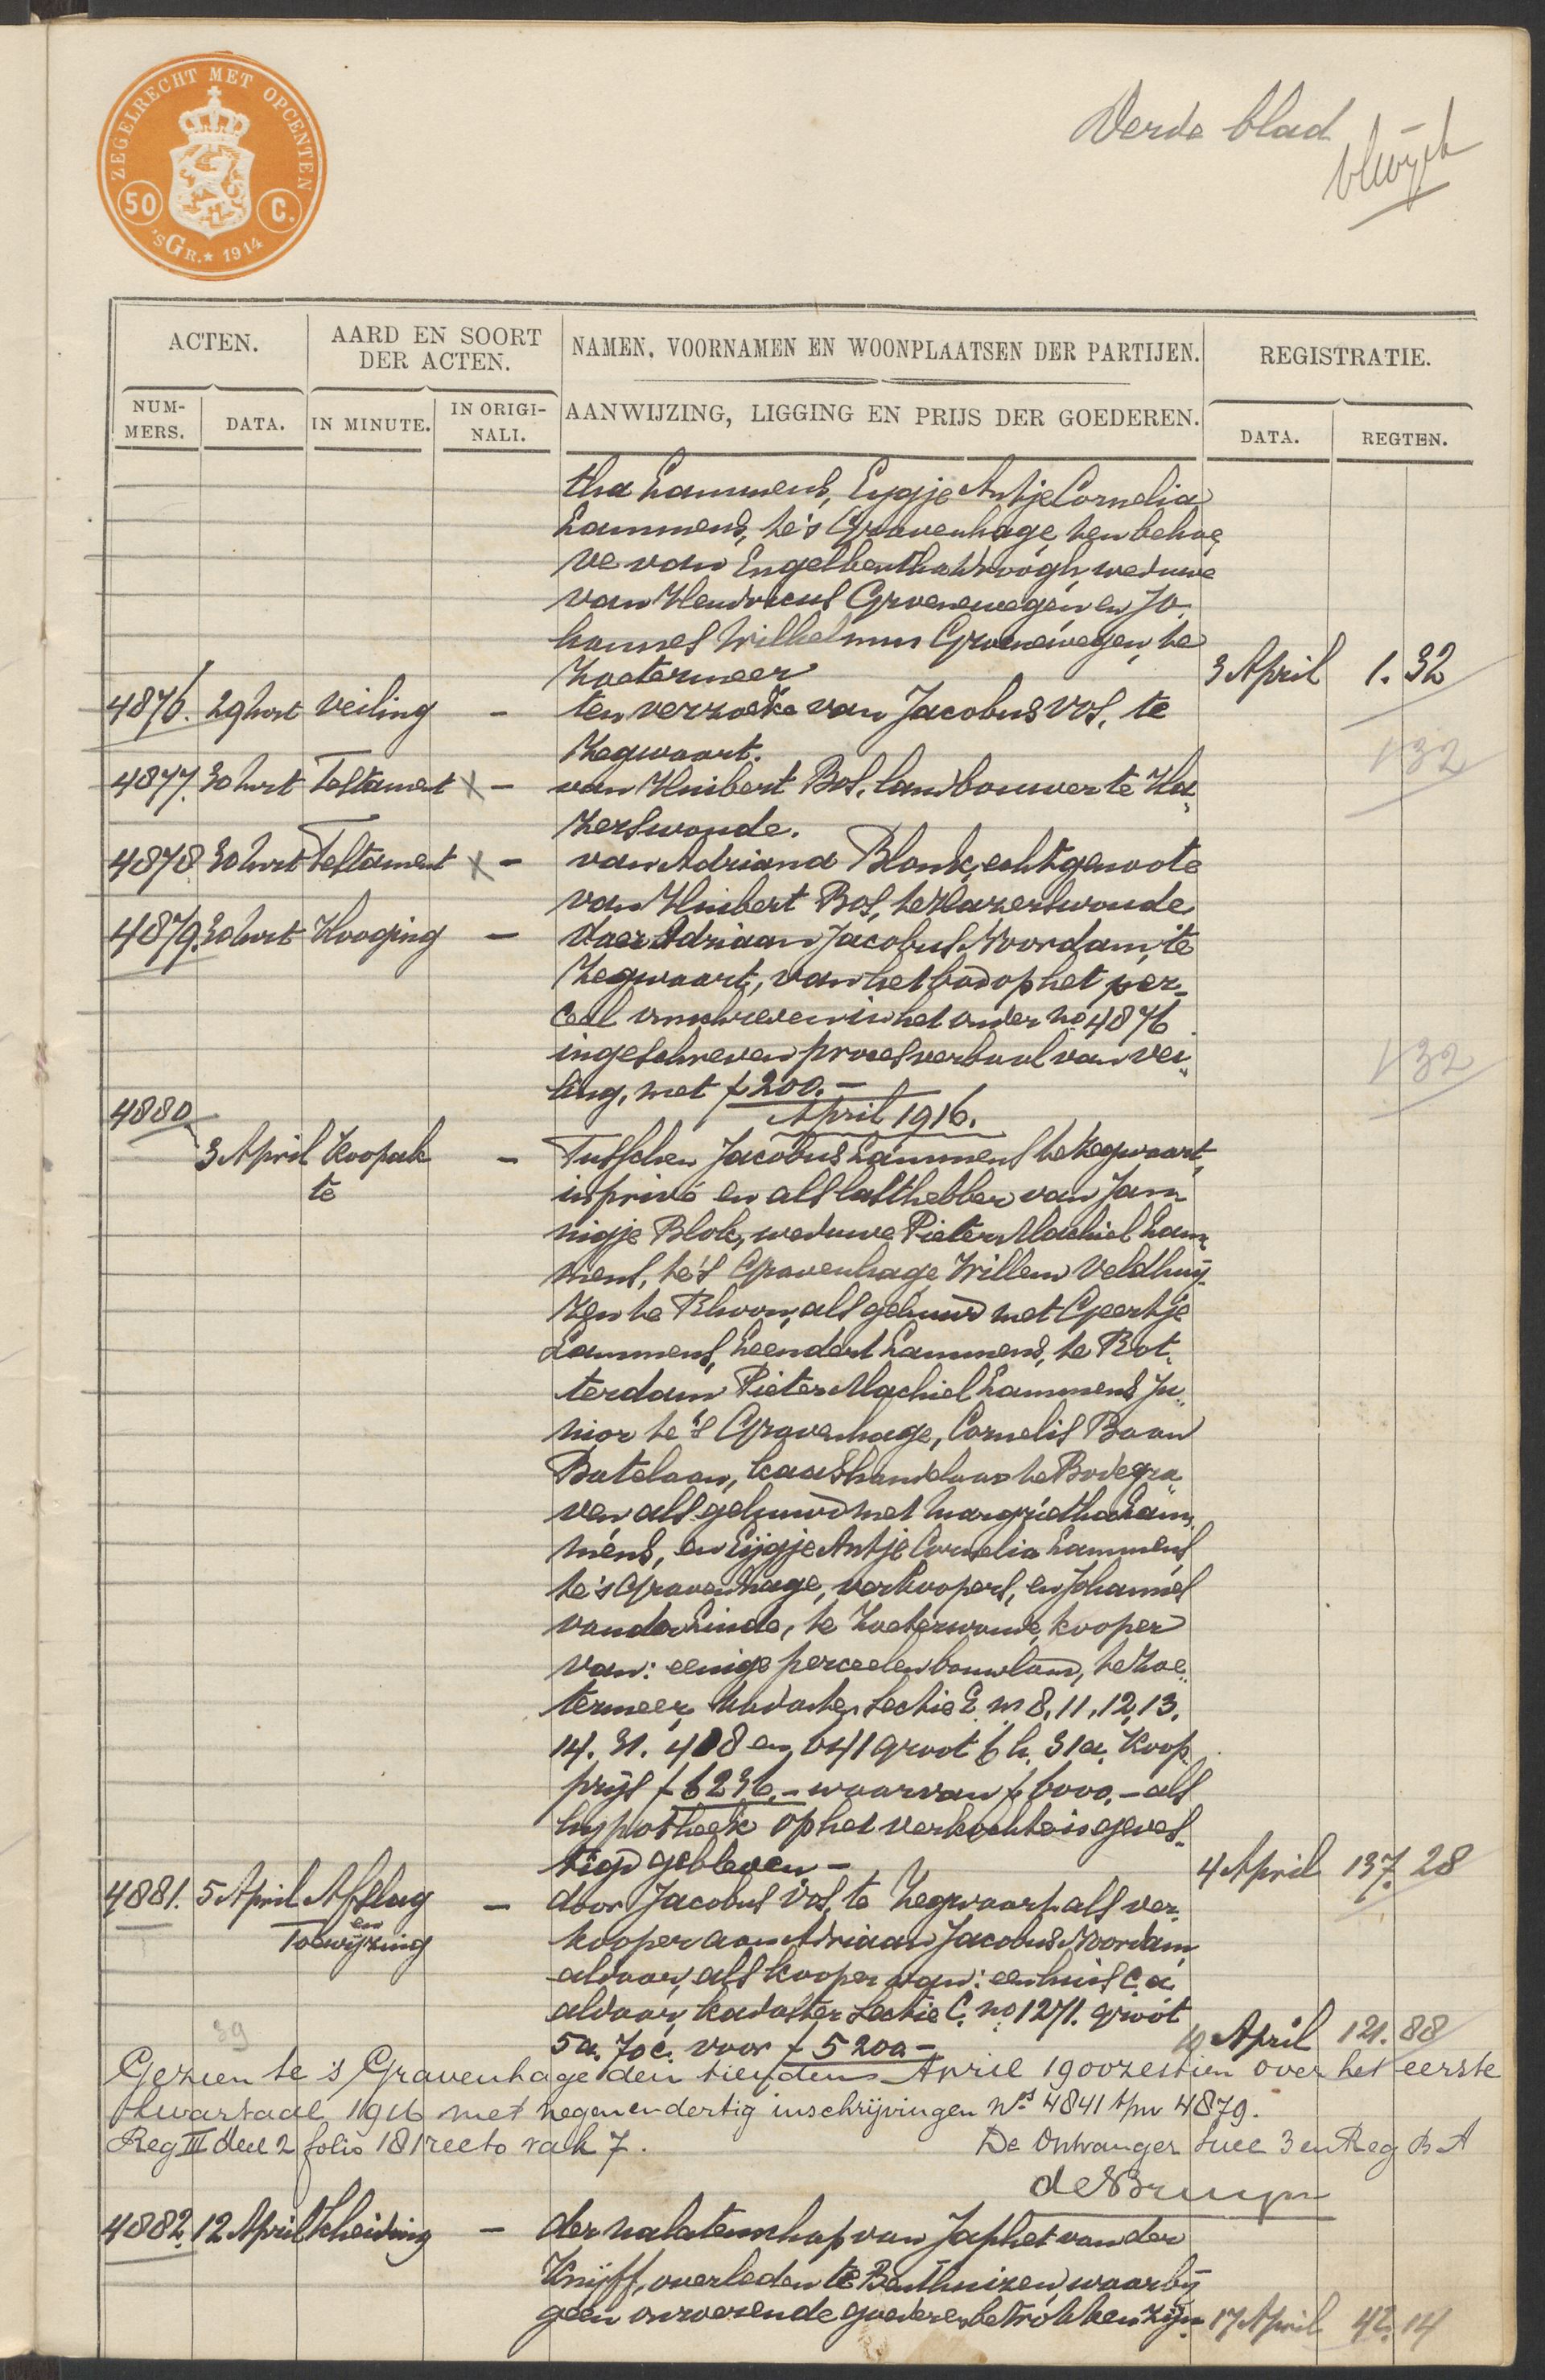 ZEGELRECHT MET OPCENTEN
50 C.
'SGR.★ 1914
Derde blad
ACTEN.
AARD EN SOORT
DER ACTEN.
NAMEN, VOORNAMEN EN WOONPLAATSEN DER PARTIJEN.
REGISTRATIE.
NUM-
MERS.
DATA.
IN MINUTE.
IN ORIGI-
NALI.
AANWIJZING, LIGGING EN PRIJS DER GOEDEREN.
DATA.
REGTEN.
tha Lammens, Eygje Antje Cornelia
Lammens, te 's Gravenhage, ten behoe
ve van Engelbertha Droogh, weduwe
van Hendricus Groenewegen en Jo
hannes Wilhelmus Groenewegen, te
Zoetermeer 3 April 1.32
4876. 29 Mrt veiling - ten verzoeke van Jacobus Vos, te
Zegwaart. 1 32
4877. 30 Mrt Testament x - van Huibert Bos, landbouwer te Ha
zerswoude.
4878 30 Mrt Testament x - van Adriana Blonk, echtgenoote
van Huibert Bos, te Hazerswoude
4879. 30 Mrt Hooging - door Adriaan Jacobus Noordam, te
Zegwaart, van het bod op het per-
ceel omschreven in het onder no 4876
ingeschreven procesverbaal van vei 1 32
ling, met f 200.-
4880 April 1916.
3 April Koopak - Tusschen Jacobus Lammens te Zegwaart,
te in privé en als lasthebber van Jan
nigje Blok, weduwe Pieter Machiel Lam
mens, te 's Gravenhage Willem Veldhuij
zen te Rhoon, als gehuwd met Geertje
Lammens, Leendert Lammens, te Rot
terdam Pieter Machiel Lammens Ju
nior te 's Gravenhage, Cornelis Baan
Batelaan, kaashandelaar te Bodegra
ven als gehuwd met Margrietha Lam
mens, en Eijgje Antje Cornelia Lammens
te 's Gravenhage, verkoopers, en Johannes
van der Linde, te Zoeterwoude, kooper
van: eenige perceelen bouwland, te Zoe
termeer, kadaster Sectie E. no 8, 11, 12, 13,
14. 31. 408 en 641 groot 6 h. 31 a. Koop
prijs f 6236,- waarvan f 6000,- als
hypotheek op het verkochte is geves
tigd gebleven - 4 April 137.28
4881. 5 April Afslag - door Jacobus Vos, te Zegwaart als ver
en
Toewijzing kooper aan Adriaan Jacobus Noordam
aldaar, als kooper van: een huis c.a.
aldaar, kadaster Sectie C. no 1271. groot
39 5 a. 70 c. voor f 5200 - 10 April 121.88
Gezien te 's Gravenhage den tienden April 1900zestien over het eerste
kwartaal 1916 met negenendertig inschrijvingen Nos 4841 t/m 4879.
Reg III deel 2 folio 181 recto vak 7. De Ontvanger Succ 3 en Reg B A
de Bruyn
4882. 12 April Scheiding - der nalatenschap van Japhet van der
Knijff, overleden te Benthuizen, waarbij
geen onroerende goederen betrokken zijn 17 April 42.14